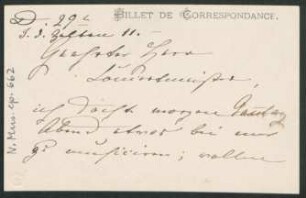 BILLET DE CORRESPONDANCE.
D. 29t
I. d. Zelten 11.
Geehrter Herr
ich dächte morgen
Abend etwas bei mir
zu musiciren; wollen
N. Mus. ep. 662